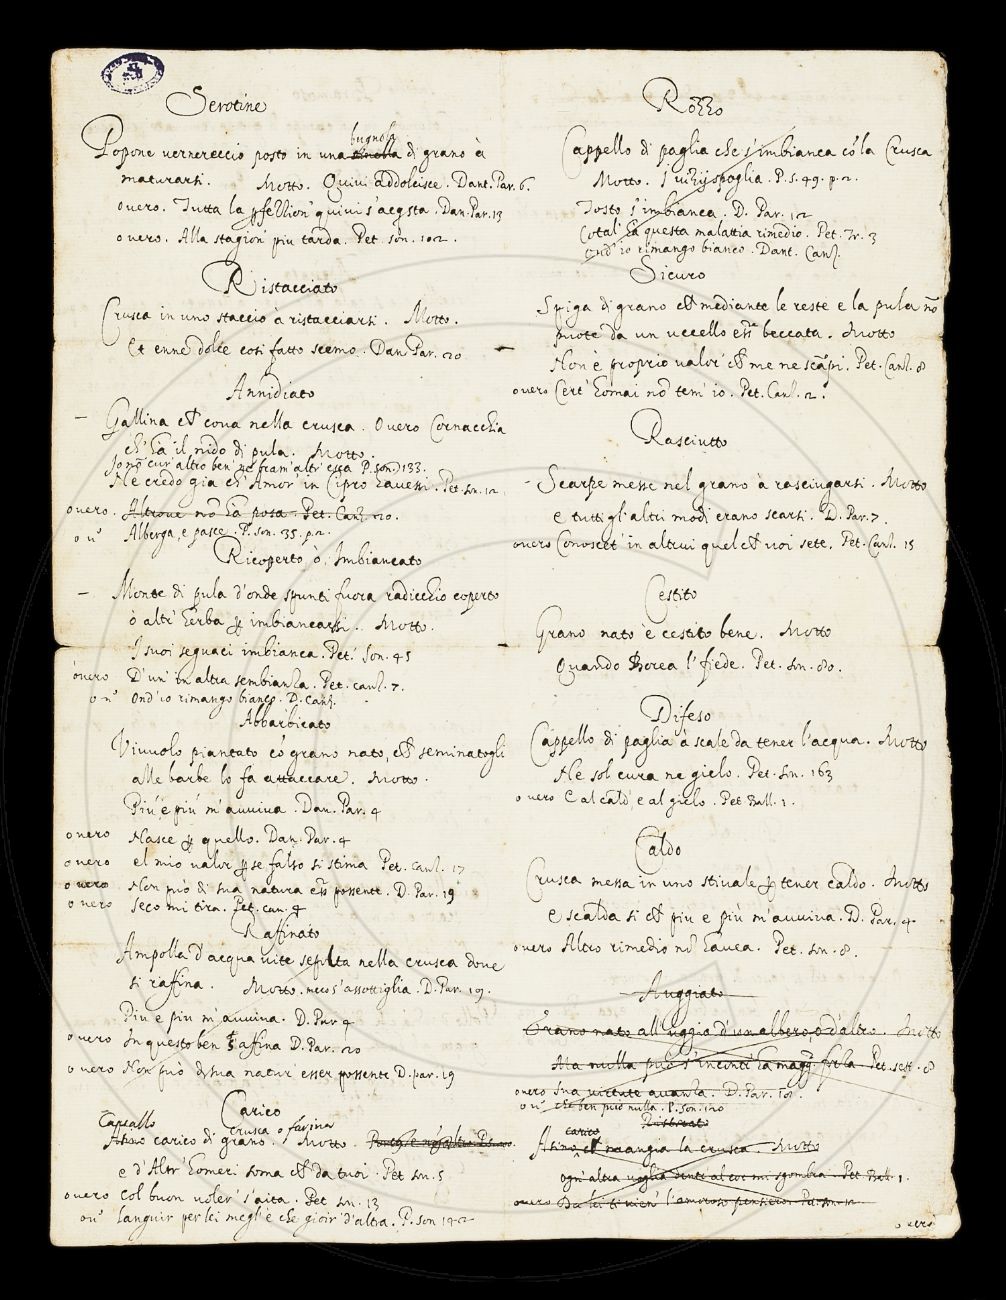 Serotine
Popone vernereccio posto in una bugnola di grano à
maturarsi. Motto. Quivi addolcisce. Dant. Par. 6.
overo. Tutta la pfezzion' quivi s'acqsta. Dan. Par. 13
overo. Alla stagion' piu tarda. Pet. son. 102.
Ristacciato
Crusca in uno staccio à ristacciarsi. Motto.
Et enne dolce cosi fatto scemo. Dan. Par. 20
Annidiato
Gallina che cova nella crusca. Overo Cornacchia
ch'hà il nido di pula. Motto.
Io nõ cur' altro ben ne bram' altr' esca P. son. 133.
Ne credo gia ch'Amor' in Cipro havessi. Pet. son. 12.
overo. Altrove nõ hà posa. Pet. Canz. 20.
o vo Alberga, e pasce. P. son. 35. p. 2.
Ricoperto ò Imbiancato
Monte di pula d'onde spunti fuora radicchio coperto
ò altr' herba p imbiancarsi. Motto.
I suoi seguaci imbianca. Pet. Son. 45
overo D'un' in altra sembianza. Pet. canz. 7.
o vo Ond'io rimango bianco. D. Canz.
Abbarbicato
Vivuolo piantato cò grano nato, che seminatogli
alle barbe lo fa attaccare. Motto.
Piú, e piú m'avviva. Dan. Par. 4
overo Nasce p quello. Dan. Par. 4
overo el mio valor p se falso si stima Pet. Canz. 17
overo Non può di sua natura ess possente. D. Par. 19
overo Seco mi tira. Pet. can. 4
Raffinato
Ampolla d'acqua vite sepolta nella crusca dove
si raffina. Motto. meco s'assottiglia. D. Par. 19.
Piu e piu m'avviva. D. Par 4
overo In questo ben s'affina D. Par. 20
overo Non può di sua natur' esser possente D. par. 19
Carico
Cappello Crusca o farina
Asino carico di grano. Motto.
e d'Altr' homeri soma che da tuoi. Pet son. 5
overo Col buon voler s'aita. Pet son. 13
o vo Languir per lei megl'è che gioir d'altra. P. son 142
Rozzo
Cappello di paglia che s'imbianca cõ la Crusca
Motto. I vizij spoglia. P. s. 49. p. 2.
Tosto s'imbianca. D. Par. 12
Cotal' hà questa malattia rimedio. Pet. Tr. 3
ond'io rimango bianco. Dant. Canz.
Sicuro
Spiga di grano che mediante le reste e la pula nõ
puote da un uccello ess beccata. Motto
Non è proprio valor che me ne scãpi. Pet. Canz. 8
overo Cert' homai nõ tem' io. Pet. Canz. 2.
Rasciutto
Scarpe messe nel grano à rasciugarsi. Motto
e tutti gl'altri modi erano scarsi. D. Par. 7.
overo Conoscet' in altrui quel che voi sete. Pet. Canz. 15
Cestito
Grano nato e cestito bene. Motto
Quando Borea l'fiede. Pet. son. 80.
Difeso
Cappello di paglia à scale da tener l'acqua. Motto
Ne sol cura ne gielo. Pet. son. 163
overo E al cald', e al gielo. Pet Ball. 1.
Caldo
Crusca messa in uno stivale p tener caldo. Motto
e scalda si che piu e piú m'avviva. D. Par. 4.
overo Altro rimedio nõ havea. Pet. son. 8.
Auggiato
Grano nato all'uggia d'un albero, o d'altro. Motto
Ma nulla può s'incont' hà magg. forza Pet. sest. 8
overo Sua virtute avanza. D. Par. 10.
o vo che ben può nulla. P. son. 120
carico
Asino, che mangia la crusca. Motto
ogn'altra voglia dentr'al cor mi sgombra. Pet Ball. 1.
overo Da lei ti vien' l'amoroso pensiero. Pet. son. 12
overo